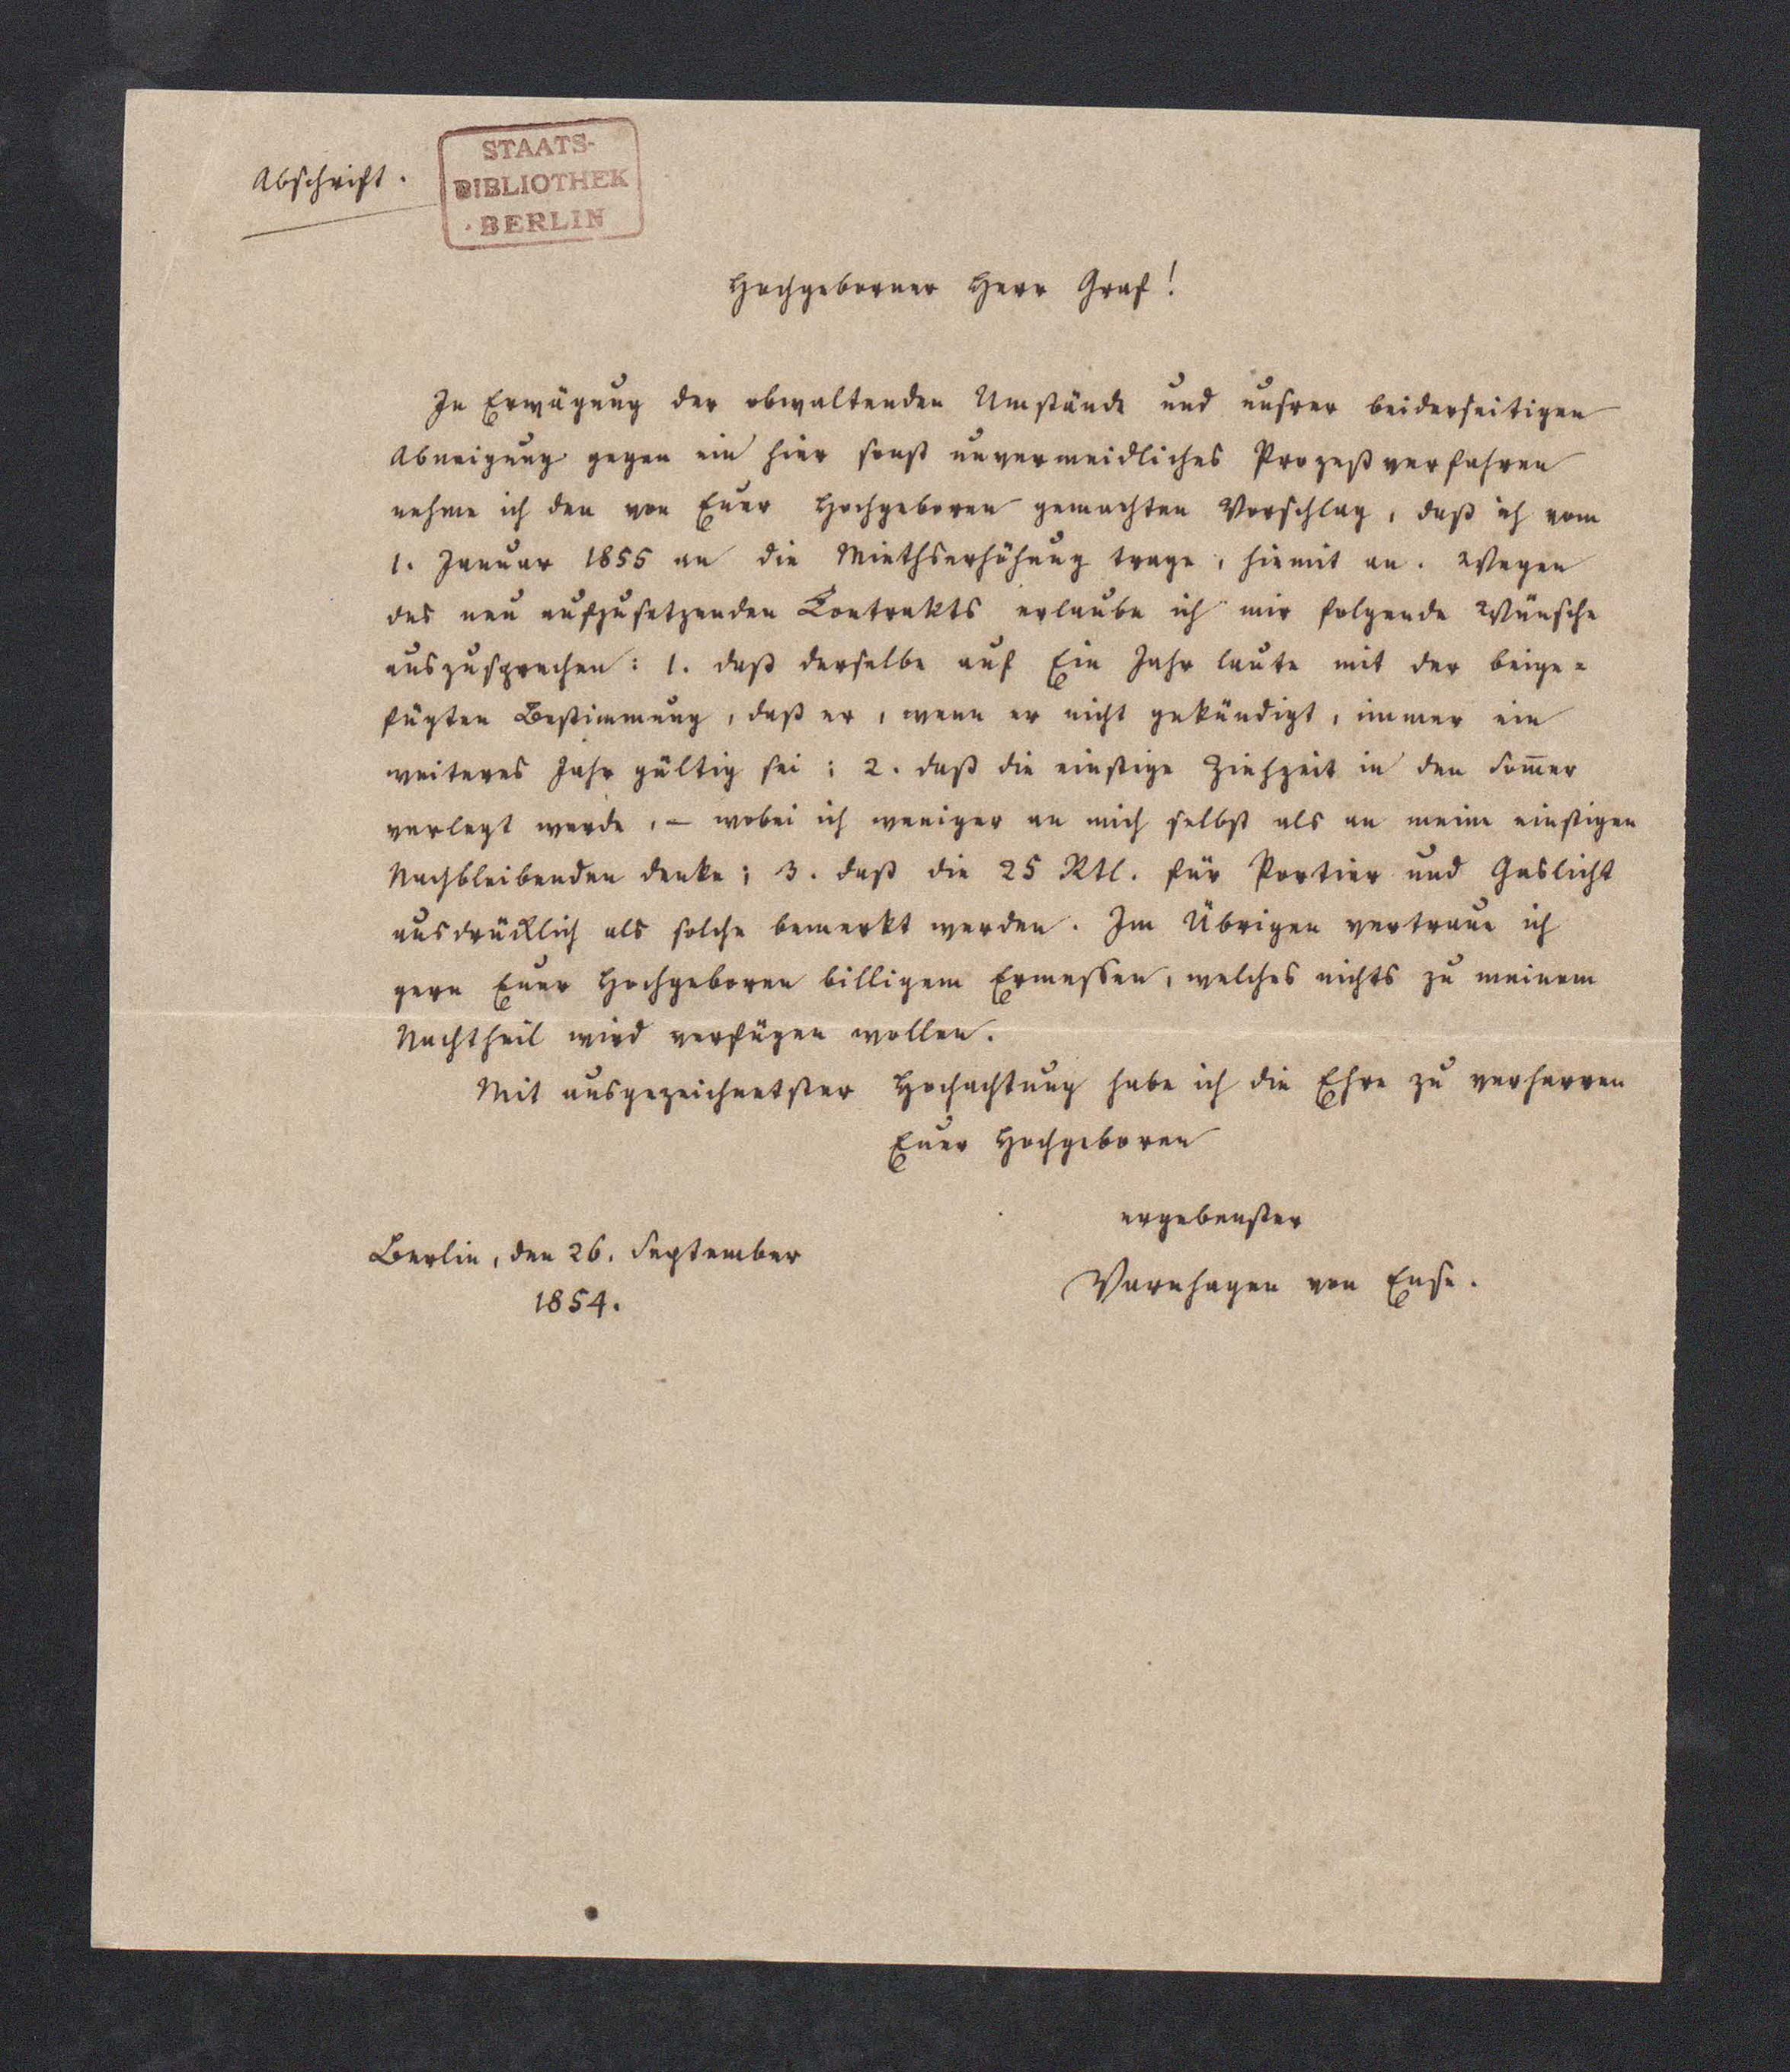 Abschrift.
STAATS-
BIBLIOTHEK
BERLIN
Hochgeborner Herr Graf!
In Erwägung der obwaltenden Umstände und unsrer beiderseitigen
Abneigung gegen ein hier sonst unvermeidliches Prozeßverfahren
nehme ich den von Euer Hochgeboren gemachten Vorschlag, daß ich vom
1. Januar 1855 an die Miethserhöhung trage, hiemit an. Wegen
des neu aufzusetzenden Contrakts erlaube ich mir folgende Wünsche
auszusprechen: 1. daß derselbe auf Ein Jahr laute mit der beige=
fügten Bestimmung, daß er, wenn er nicht gekündigt, immer ein
weiteres Jahr gültig sei; 2. daß die einstige Ziehzeit in den Som̅er
verlegt werde, – wobei ich weniger an mich selbst als an meine einstigen
Nachbleibenden denke; 3. daß die 25 Rtl. für Portier und Gaslicht
ausdrücklich als solche bemerkt werden. Im Übrigen vertraue ich
gern Euer Hochgeboren billigem Ermessen, welches nichts zu meinem
Nachtheil wird verfügen wollen.
Mit ausgezeichnetster Hochachtung habe ich die Ehre zu verharren
Euer Hochgeboren
ergebenster
Berlin, den 26. September
1854.
Varnhagen von Ense.